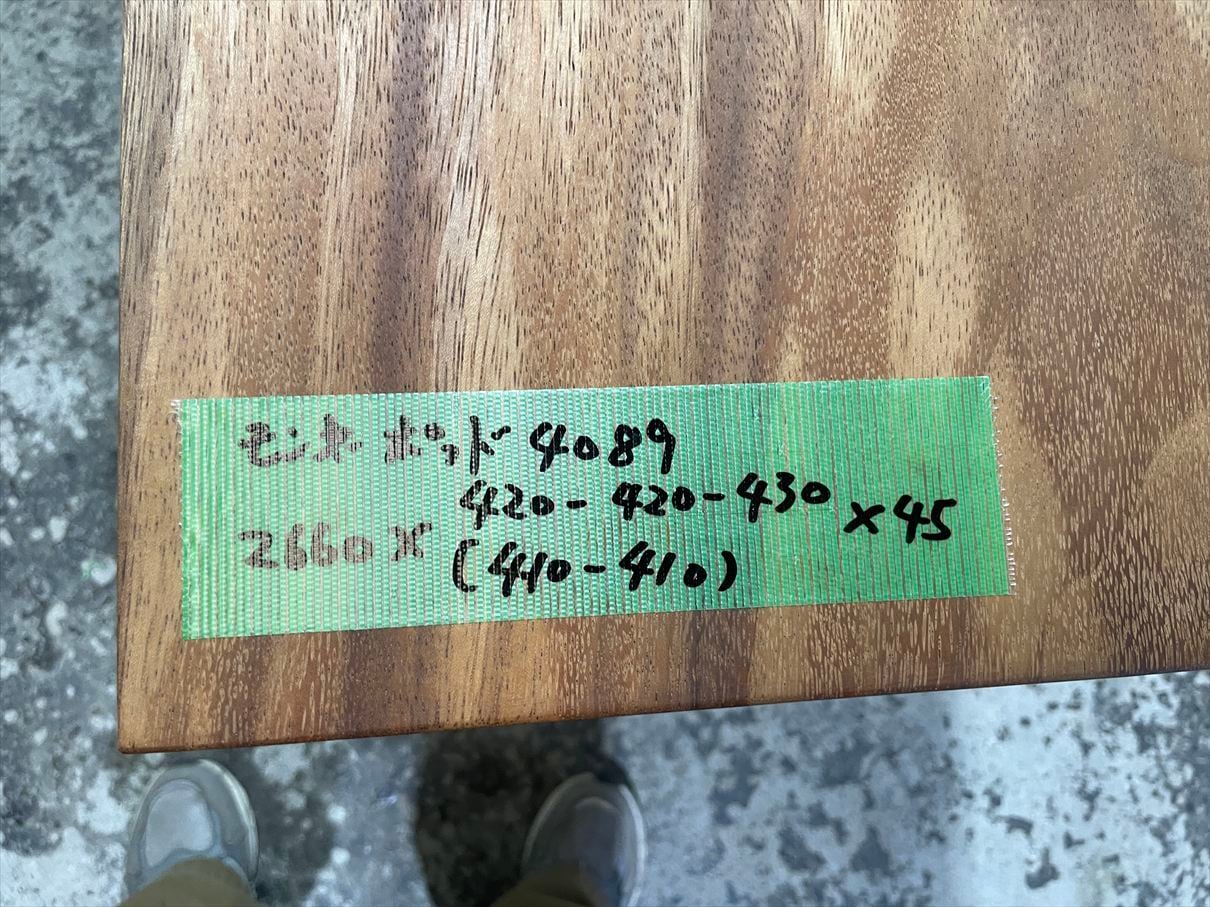 モンキーポッド 4089
2660× 420-420-430 ×45
(410-410)